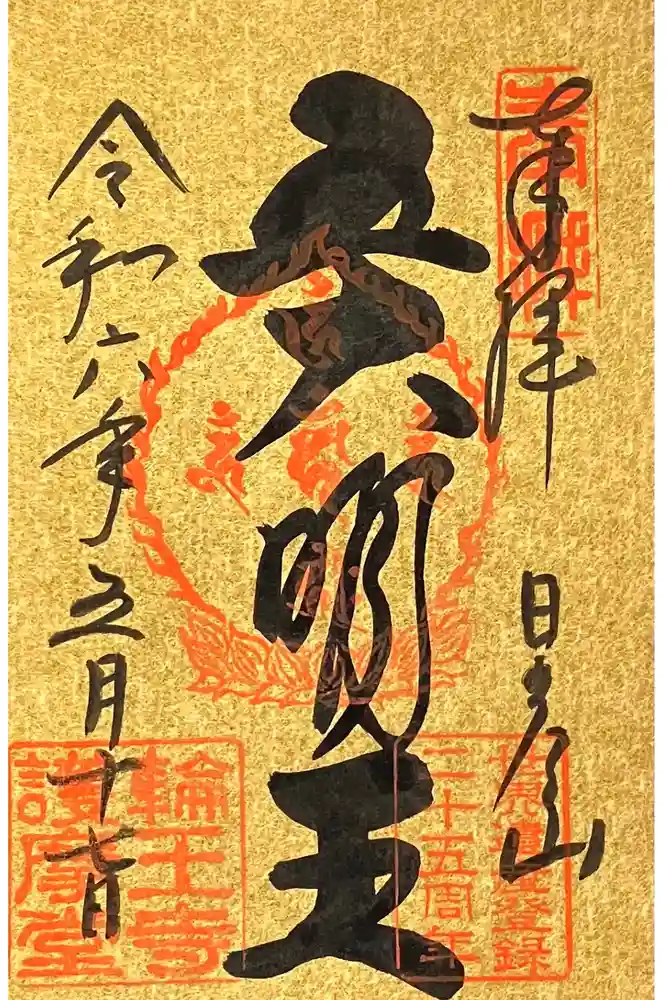 奉拝 日光山
五大明王
令和六年五月十七日
世界遺産登録
二十五周年
輪王寺
護摩堂